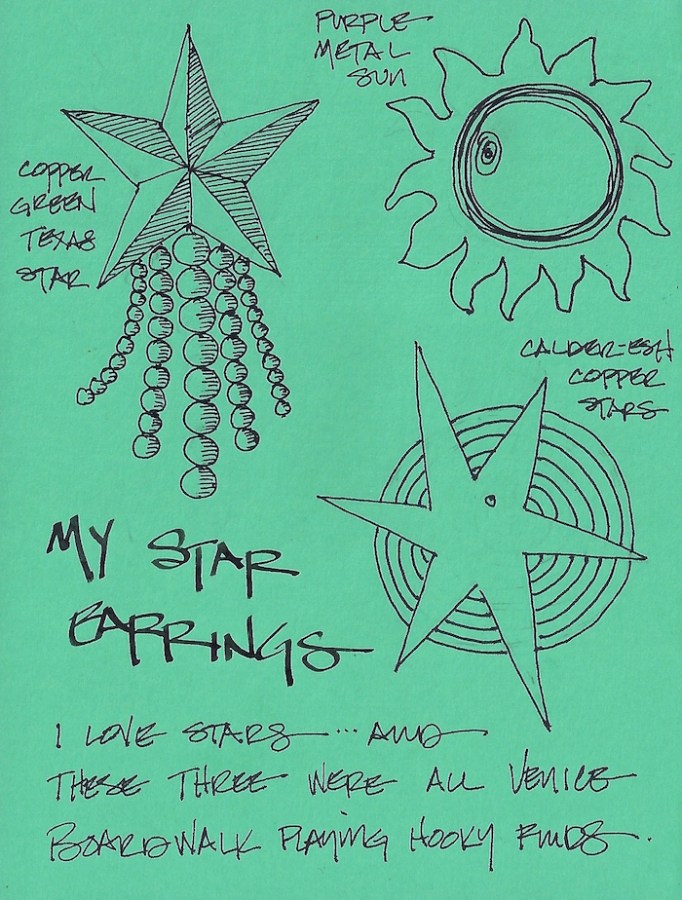 PURPLE
METAL
SUN
COPPER
GREEN
TEXAS
STAR
CALDER-ESH
COPPER
STARS
MY STAR
EARRINGS
I LOVE STARS ... AND
THESE THREE WERE ALL VENICE
BOARDWALK PLAYING HOOKY FINDS.